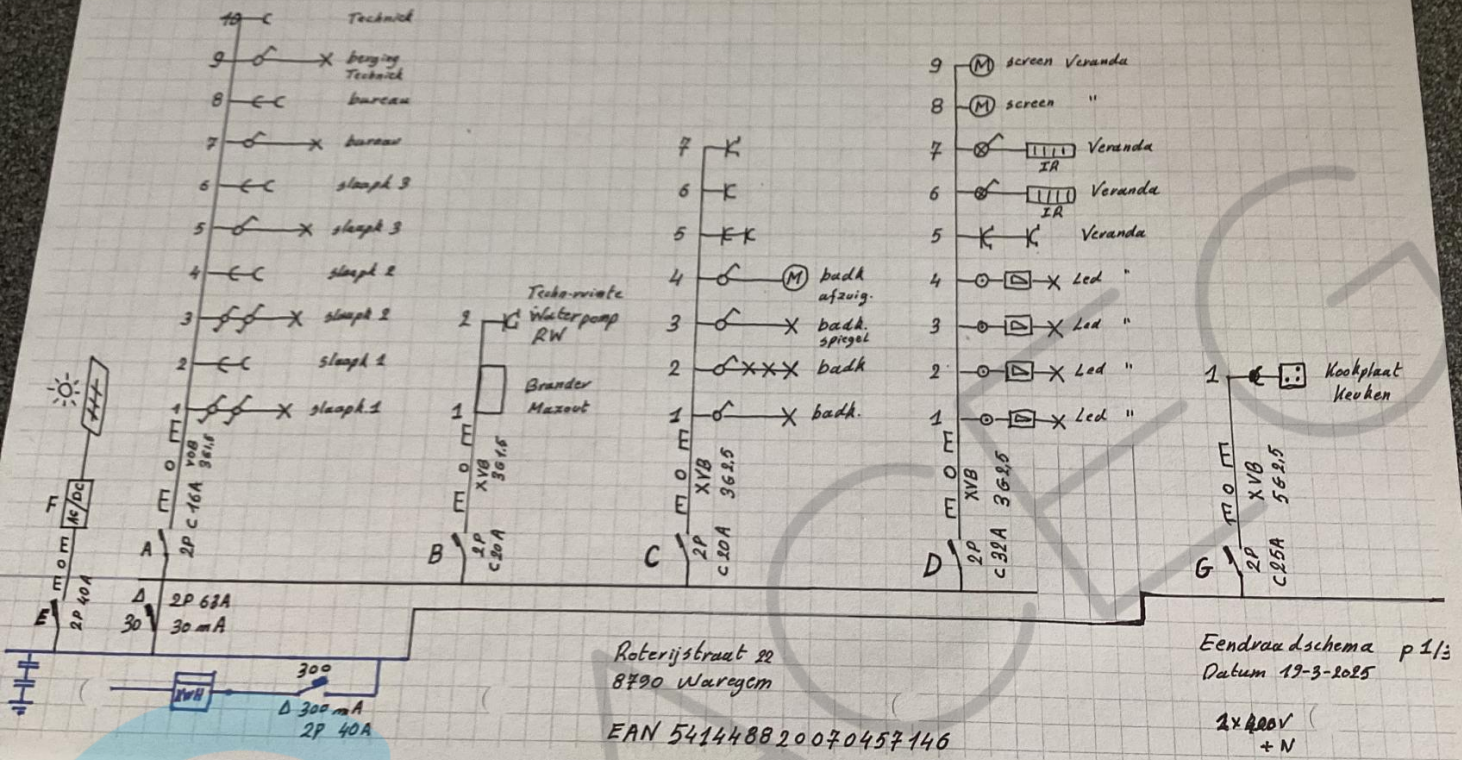 10 Technick
9 berging
Technick
8 bureau
7 bureau
6 slaapk 3
5 slaapk 3
4 slaapk 2
3 slaapk 2
2 slaapk 1
1 slaapk 1
VOB
3G1,5
A
2P C 16A
F
AC/DC
E
2P 40A
Δ 2P 63A
30 30 mA
2 Techn-ruimte
Waterpomp
RW
1 Brander
Mazout
XVB
3G1,5
B
2P
C20A
7
6
5
4 M badk
afzuig.
3 badk.
spiegel
2 badk
1 badk.
XVB
3G2,5
C
2P
C20A
9 M screen Veranda
8 M screen "
7 Veranda
IR
6 Veranda
IR
5 Veranda
4 Led "
3 Led "
2 Led "
1 Led "
XVB
3G2,5
D
2P
C32A
1 Kookplaat
Keuken
XVB
5G2,5
G
2P
C25A
KWH
300
Δ 300 mA
2P 40A
Roterijstraat 22
8790 Waregem
EAN 541448820070457146
Eendraadschema p 1/3
Datum 19-3-2025
2x400V
+ N
ACEG